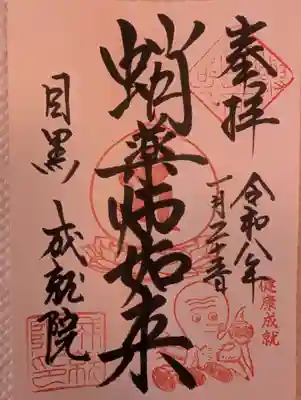 奉拝
令和八年
一月
健康成就
蛸薬師如来
目黒 成就院